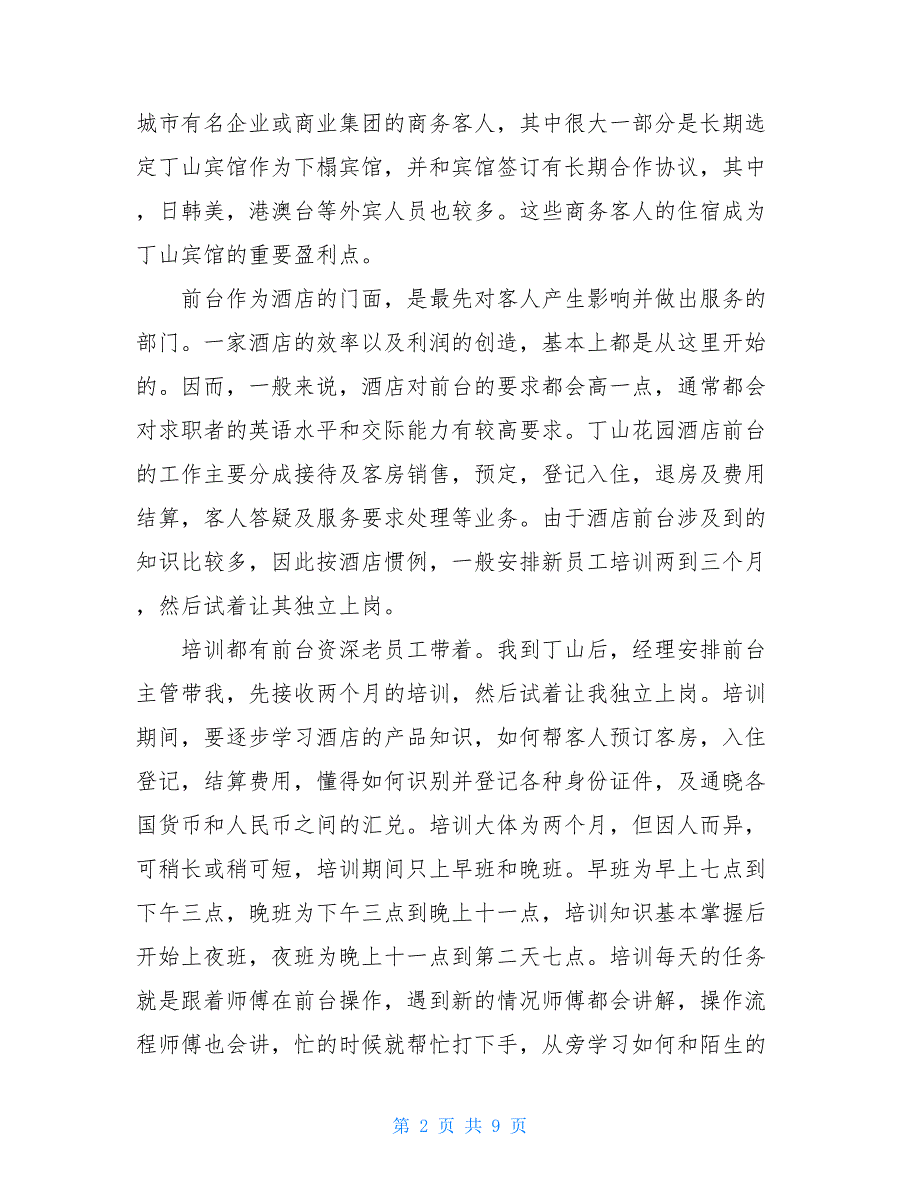 城市有名企业或商业集团的商务客人，其中很大一部分是长期选
定丁山宾馆作为下榻宾馆，并和宾馆签订有长期合作协议，其中
，日韩美，港澳台等外宾人员也较多。这些商务客人的住宿成为
丁山宾馆的重要盈利点。
前台作为酒店的门面，是最先对客人产生影响并做出服务的
部门。一家酒店的效率以及利润的创造，基本上都是从这里开始
的。因而，一般来说，酒店对前台的要求都会高一点，通常都会
对求职者的英语水平和交际能力有较高要求。丁山花园酒店前台
的工作主要分成接待及客房销售，预定，登记入住，退房及费用
结算，客人答疑及服务要求处理等业务。由于酒店前台涉及到的
知识比较多，因此按酒店惯例，一般安排新员工培训两到三个月
，然后试着让其独立上岗。
培训都有前台资深老员工带着。我到丁山后，经理安排前台
主管带我，先接收两个月的培训，然后试着让我独立上岗。培训
期间，要逐步学习酒店的产品知识，如何帮客人预订客房，入住
登记，结算费用，懂得如何识别并登记各种身份证件，及通晓各
国货币和人民币之间的汇兑。培训大体为两个月，但因人而异，
可稍长或稍可短，培训期间只上早班和晚班。早班为早上七点到
下午三点，晚班为下午三点到晚上十一点，培训知识基本掌握后
开始上夜班，夜班为晚上十一点到第二天七点。培训每天的任务
就是跟着师傅在前台操作，遇到新的情况师傅都会讲解，操作流
程师傅也会讲，忙的时候就帮忙打下手，从旁学习如何和陌生的
第 2 页 共 9 页